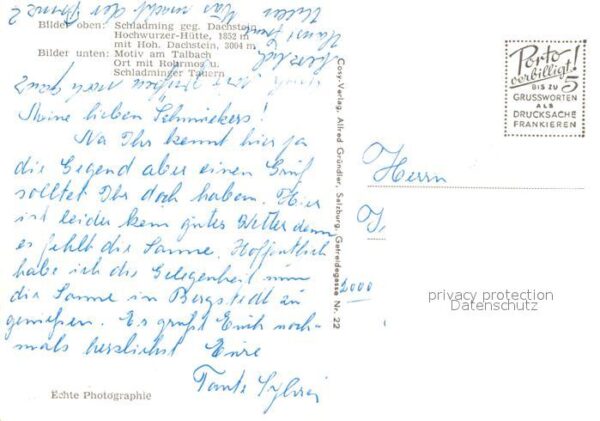 Bilder oben: Schladming geg. Dachstein
Hochwurzer-Hütte, 1852 m
mit Hoh. Dachstein, 3004 m
Bilder unten: Motiv am Talbach
Ort mit Rohrmoos u.
Schladminger Tauern
Meine lieben Schmiekers!
Na Ihr kennt hier ja
die Gegend aber einen Gruß
solltet Ihr doch haben. Hier
ist leider kein gutes Wetter denn
es fehlt die Sonne. Hoffentlich
habe ich die Gelegenheit nun
die Sonne in Bergstedt zu
genießen. Es grüßt Euch noch-
mals herzlichst Eure
Tante
Echte Photographie
Cosy-Verlag, Alfred Gründler, Salzburg, Getreidegasse Nr. 22
Porto
verbilligt!
BIS ZU 5
GRUSSWORTEN
ALS
DRUCKSACHE
FRANKIEREN
Herrn
2000
privacy protection
Datenschutz